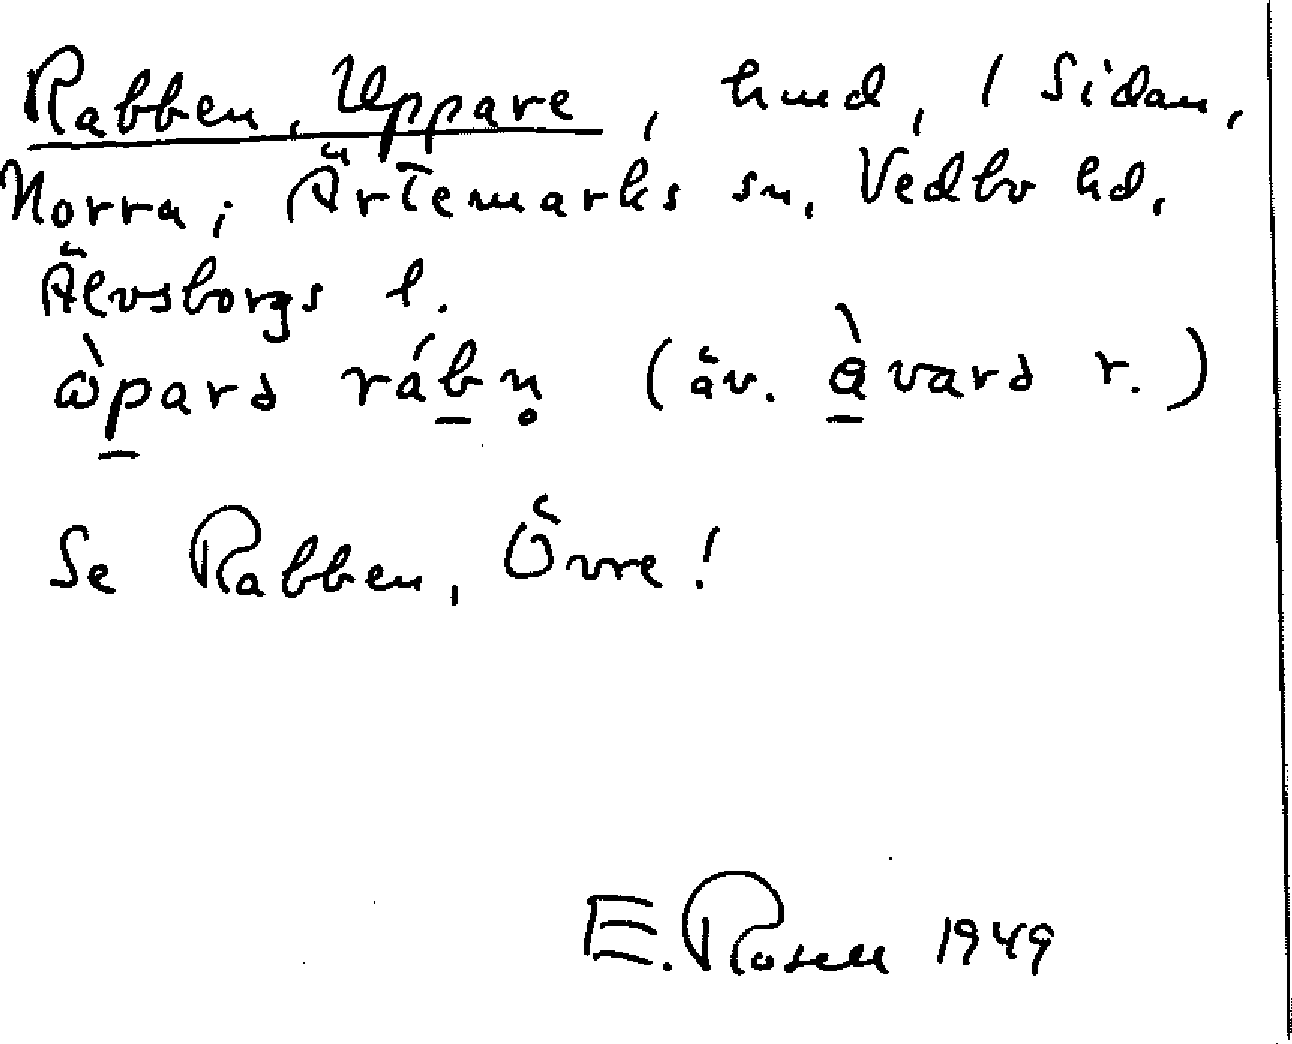 Rabben, Uppare, hmd, 1 Sidan,
Norra; Ärtemarks sn, Vedbo hd,
Älvsborgs l.
ὼp̱arə ráḇn̥ (äv. à̱varə r.)
Se Rabben, Övre!
E. Rosell 1949